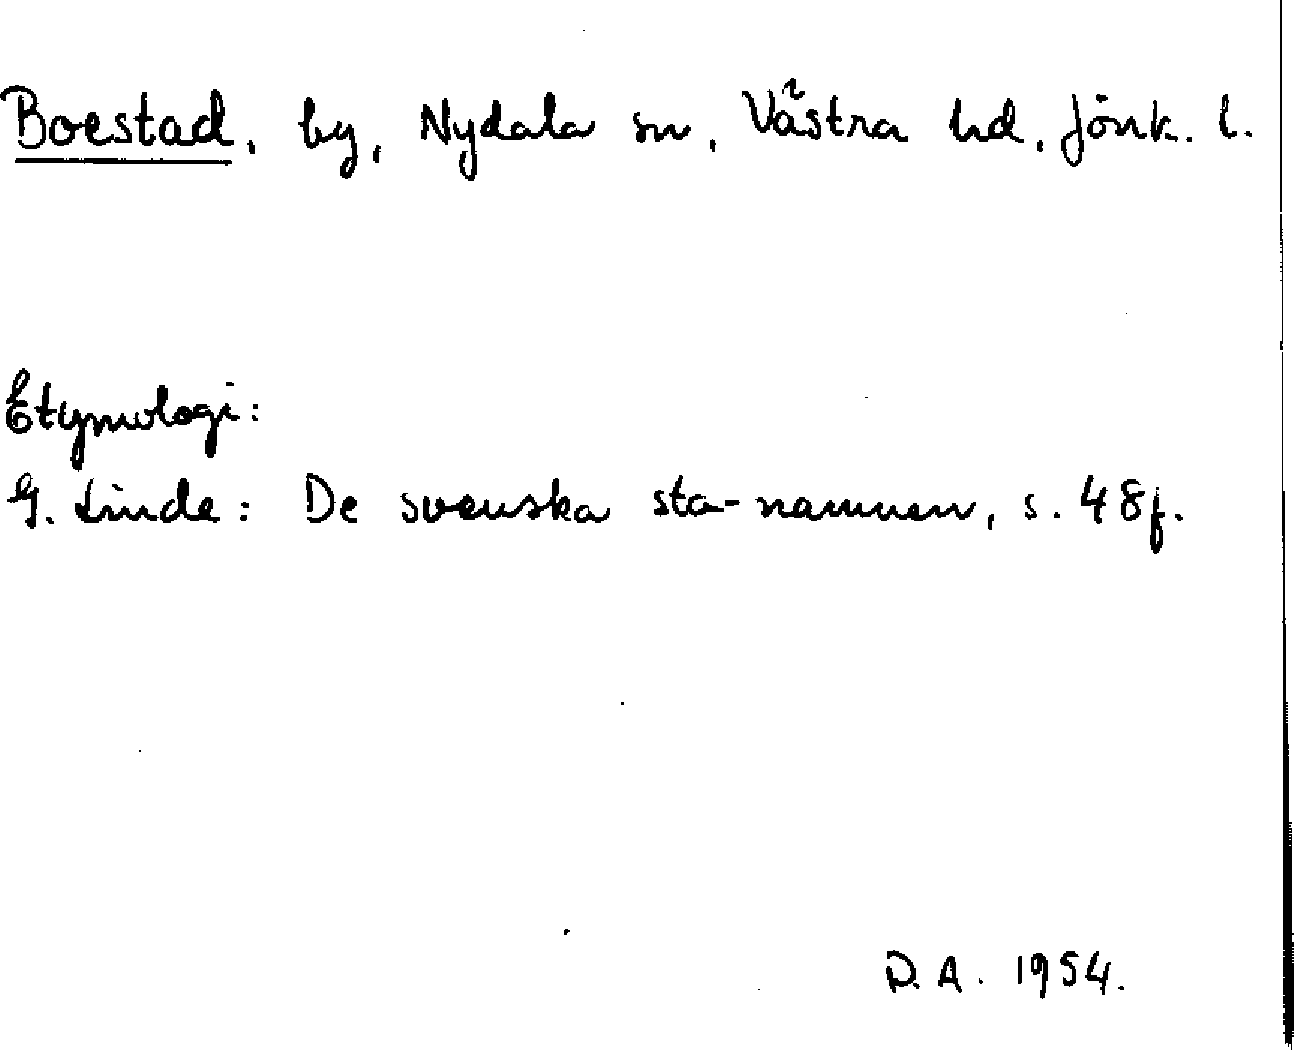 Boestad, by, Nydala sn, Västra hd, Jönk. l.
Etymologi:
G. Linde: De svenska sta-namnen, s. 48f.
D.A. 1954.